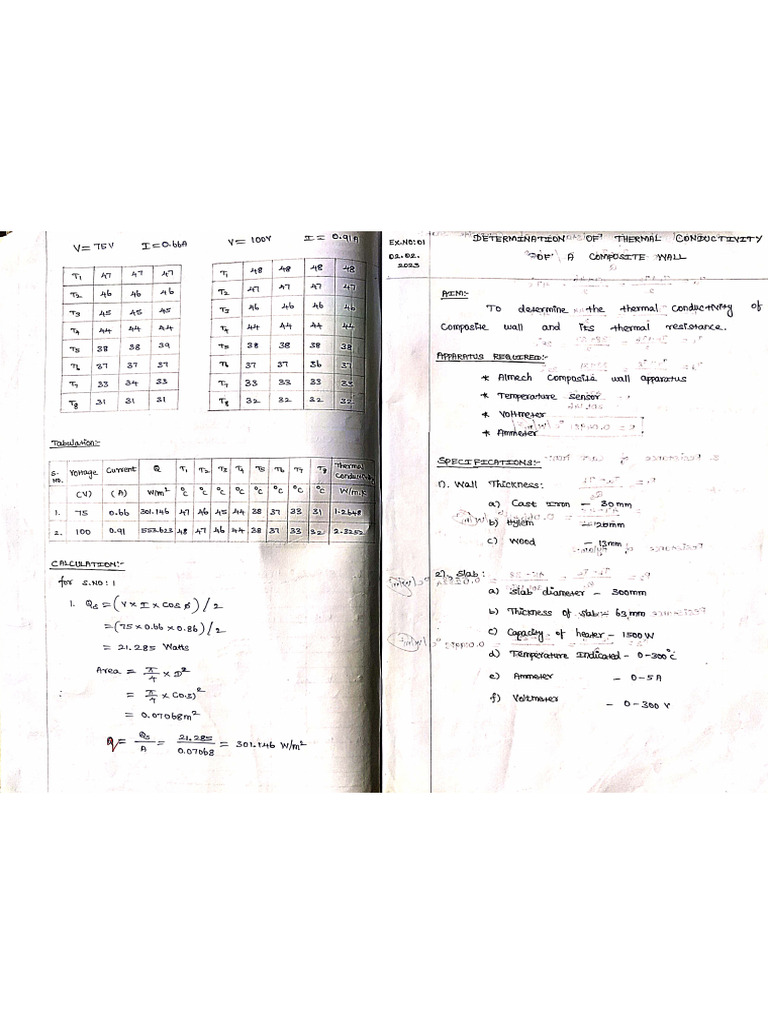 V= 75V I=0.66A V= 100V I= 0.91A
T1 47 47 47
T2 46 46 46
T3 45 45 45
T4 44 44 44
T5 38 38 39
T6 37 37 37
T7 33 34 33
T8 31 31 31
T1 48 48 48 48
T2 47 47 47 47
T3 46 46 46 46
T4 44 44 44 44
T5 38 38 38 38
T6 37 37 36 37
T7 33 33 33 33
T8 32 32 32 32
Tabulation:-
S.NO. Voltage Current Q T1 T2 T3 T4 T5 T6 T7 T8 Thermal Conductivity
(V) (A) W/m² °C °C °C °C °C °C °C °C W/m.K
1. 75 0.66 301.146 47 46 45 44 38 37 33 31 1.2648
2. 100 0.91 553.623 48 47 46 44 38 37 33 32 2.3252
CALCULATION:-
for S.NO: 1
1. Qs = (V x I x Cos φ) / 2
= (75 x 0.66 x 0.86) / 2
= 21.285 Watts
Area = π/4 x D²
= π/4 x (0.3)²
= 0.07068m²
Q = Qs/A = 21.285/0.07068 = 301.146 W/m²
EX.NO: 01
02.02.2023
DETERMINATION OF THERMAL CONDUCTIVITY
OF A COMPOSITE WALL
AIM:-
To determine the thermal conductivity of
Composite wall and its thermal resistance.
APPARATUS REQUIRED:-
* Almech Composite wall apparatus
* Temperature sensor
* Voltmeter
* Ammeter
SPECIFICATIONS:-
1). Wall Thickness:
a) Cast Iron - 30mm
b) Hylem - 20mm
c) Wood - 13mm
2). Slab:
a) Slab diameter - 300mm
b) Thickness of slab - 63mm
c) Capacity of heater - 1500 W
d) Temperature Indicated - 0-300°C
e) Ammeter - 0-5A
f) Voltmeter - 0-300 V